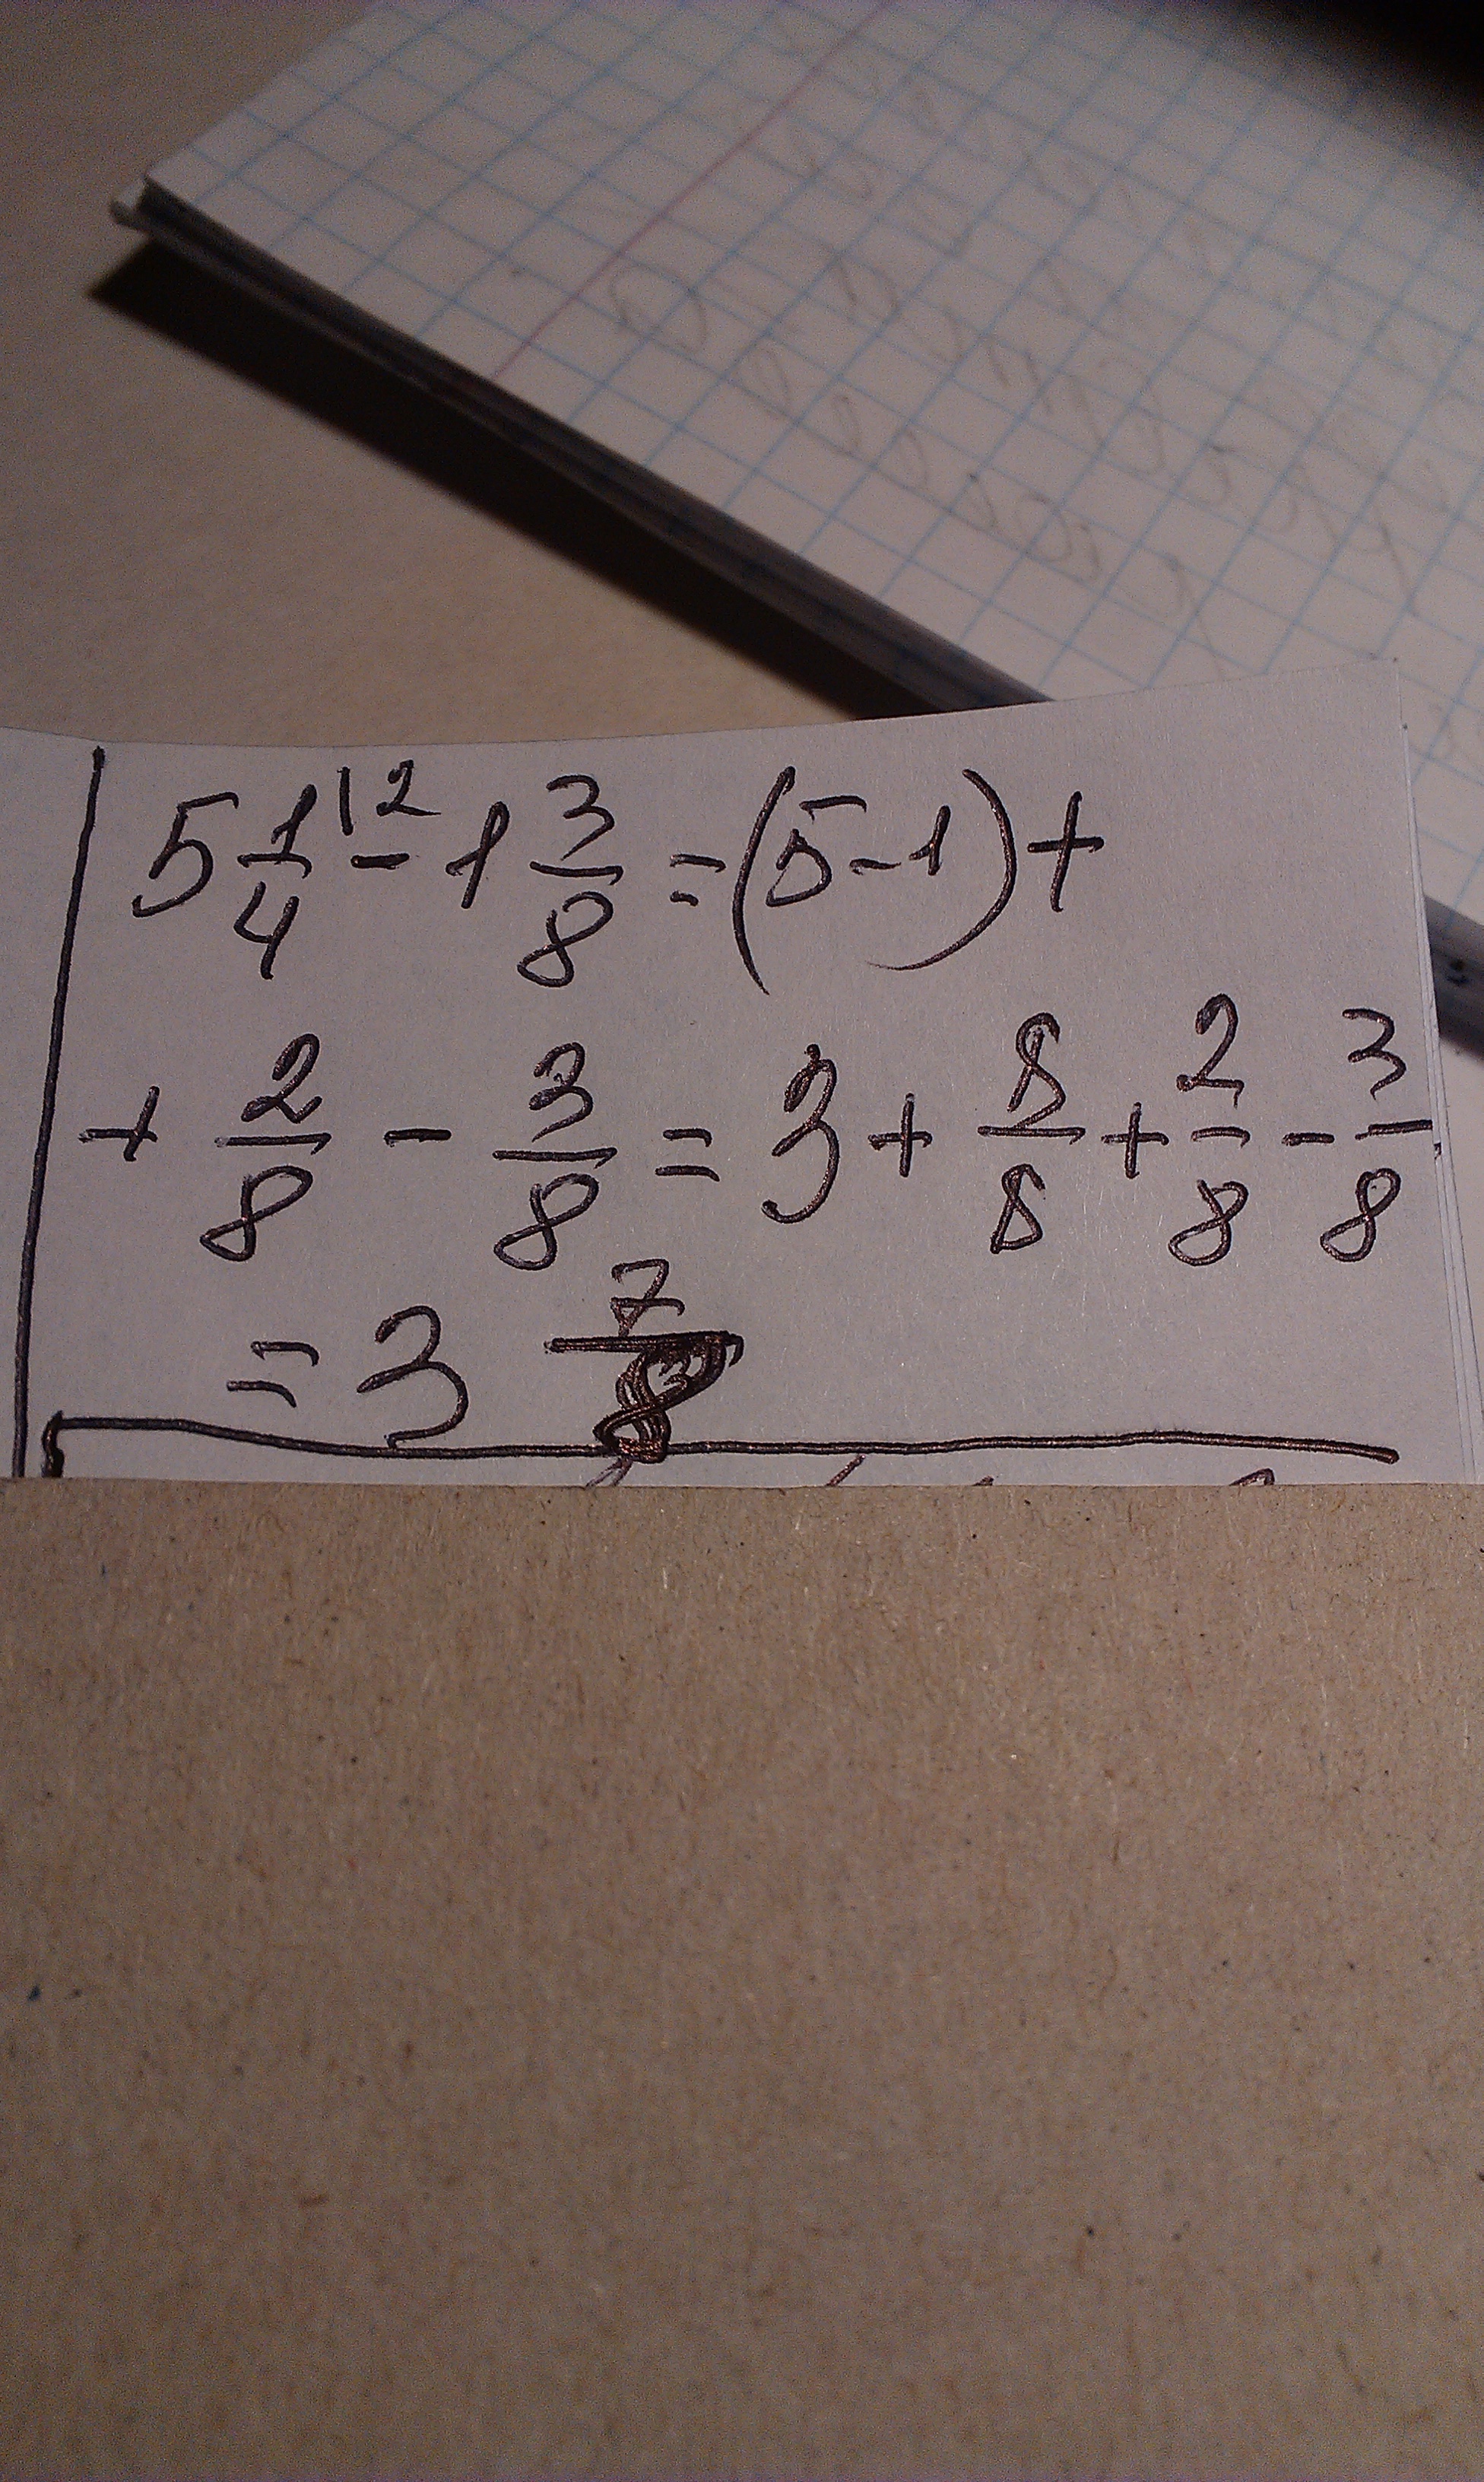 5 1/4 |2 - 1 3/8 = (5 - 1) +
+ 2/8 - 3/8 = 3 + 8/8 + 2/8 - 3/8
= 3 7/8